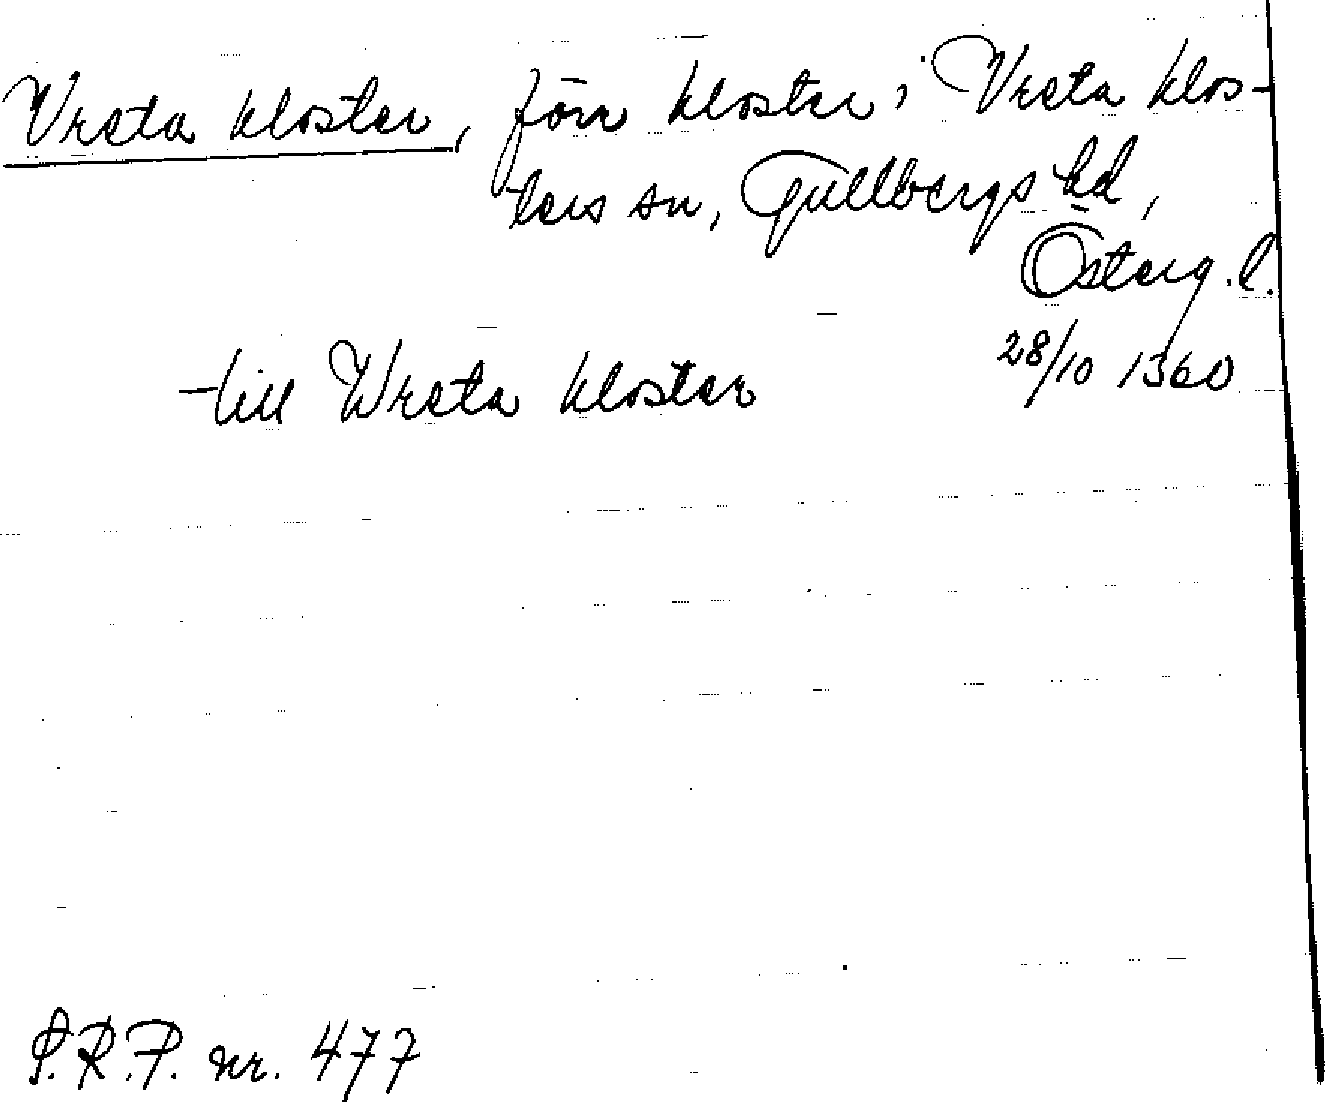 Vreta kloster, förr kloster i Vreta klos-
ters sn, Gullbergs hd,
Österg. l.
till Wreta kloster 28/10 1360
S.R.P. nr. 477